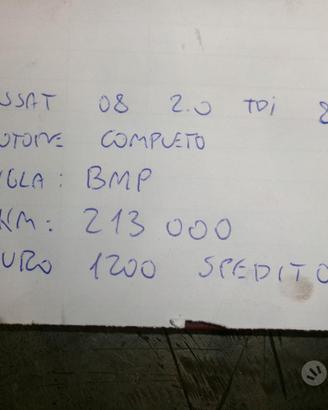 SSAT 08 2.0 TDi 8
OTORE COMPLETO
IGLA: BMP
KM: 213 000
URO 1200 SPEDITO